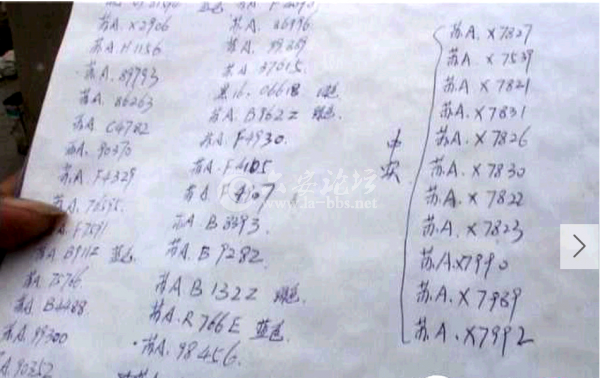 苏A.X2906
苏A.H1156
苏A.89793
苏A.86263
苏A C4782
苏A.90370
苏A.F4329
苏A.76595
A.F7591
苏A B9112 蓝色
苏A 75766
苏A.B4488
苏A.99300
苏A.90352
苏A.86996
苏A.99369
苏A 37015
黑16.06618 绿色
苏A.B9622 绿色
苏A.F4930.
苏A.F4105
苏A F4107
苏A B 8393
苏A.B 9282
苏A B 1322 绿色
苏A.R 766E 蓝色
苏A.98456.
苏A.X7827
苏A.X7539
苏A X7821
苏A.X7831
苏A.X7826
苏A.X7830
苏A.X7822
苏A.X7823
苏A.X7990
苏A.X7989
苏A.X7992
六安论坛
www.la-bbs.net